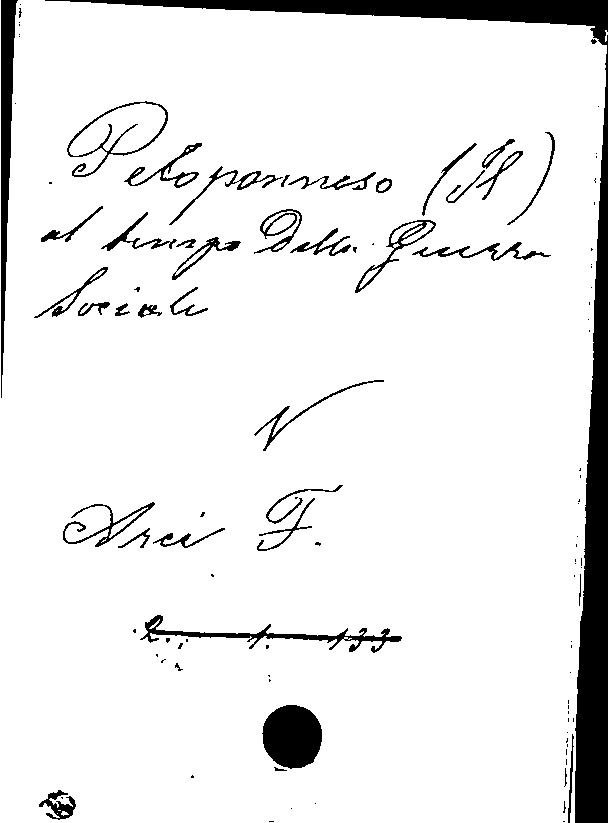 Peloponneso (Il)
al tempo Della Guerra
Sociale
V
Arci F.
2. 1. 133